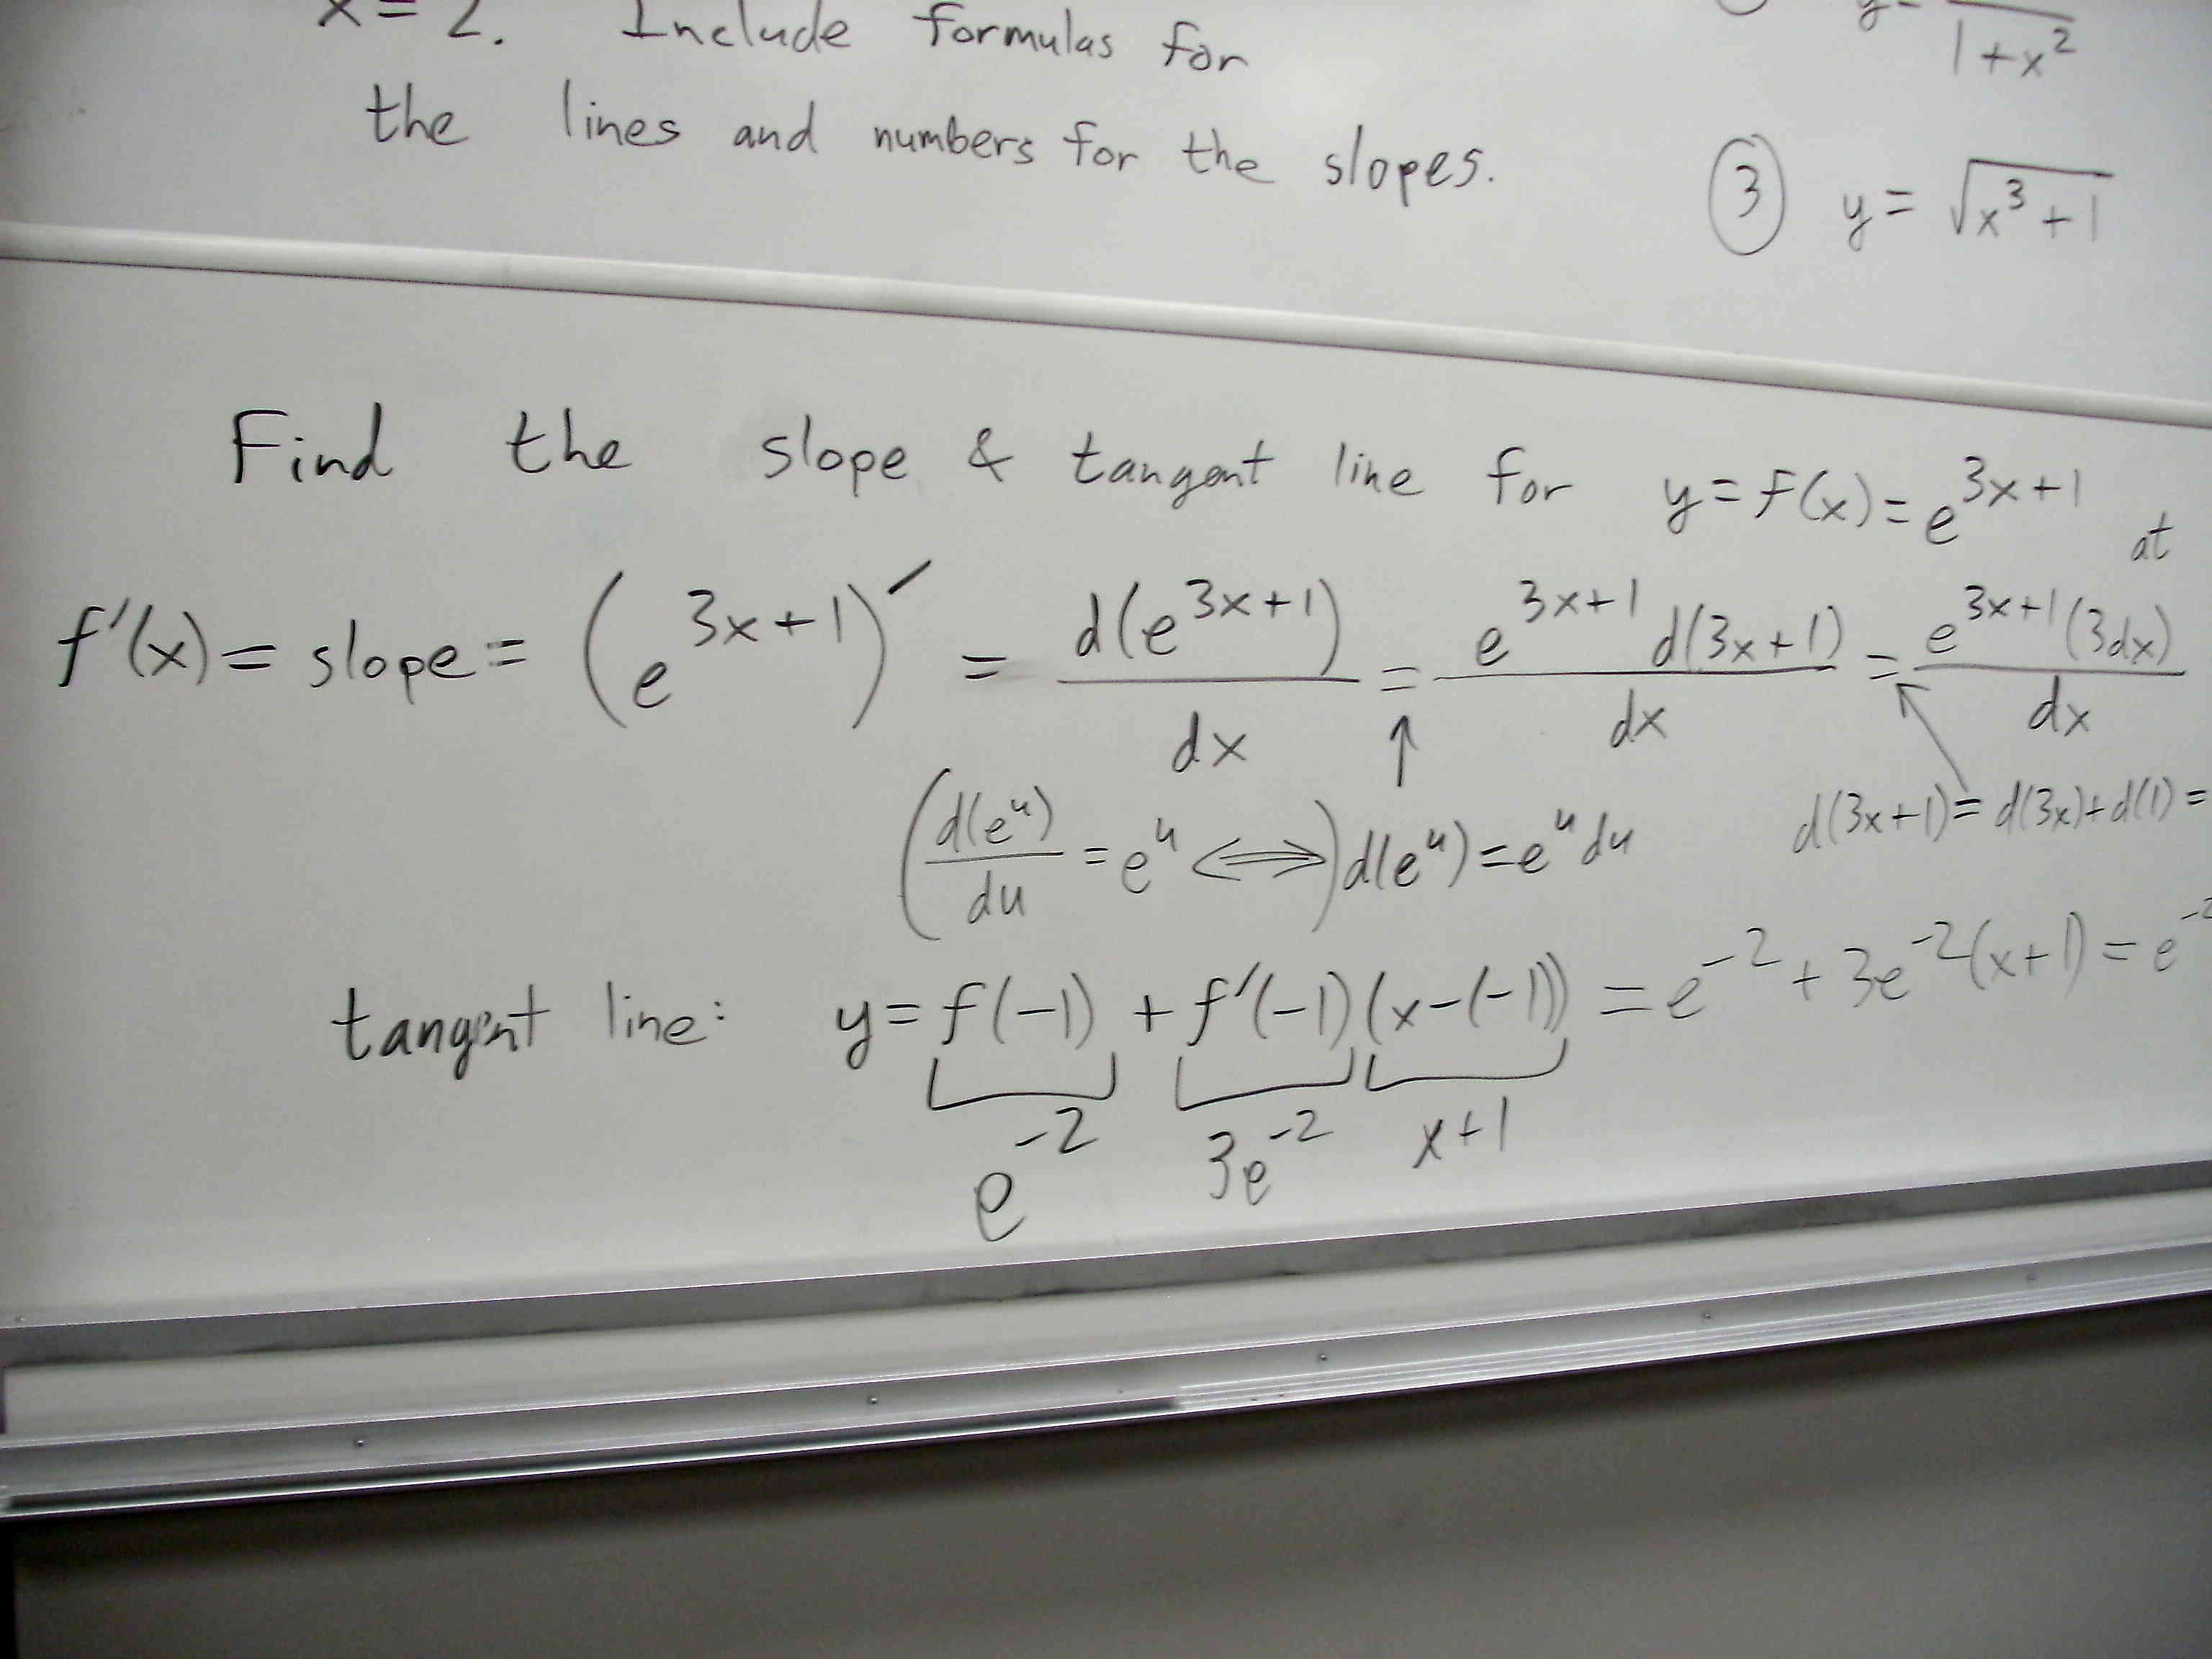 x = 2. Include formulas for
the lines and numbers for the slopes.
y = / 1+x²
③ y = √(x³+1)
Find the slope & tangent line for y = f(x) = e^(3x+1) at
f'(x) = slope = (e^(3x+1))′ = d(e^(3x+1))/dx = e^(3x+1) d(3x+1)/dx = e^(3x+1)(3dx)/dx
↑
(d(e^u)/du = e^u ⟺) d(e^u) = e^u du
d(3x+1) = d(3x) + d(1) =
tangent line: y = f(-1) + f'(-1)(x-(-1)) = e^(-2) + 3e^(-2)(x+1) = e^(-2)
e^(-2) 3e^(-2) x+1